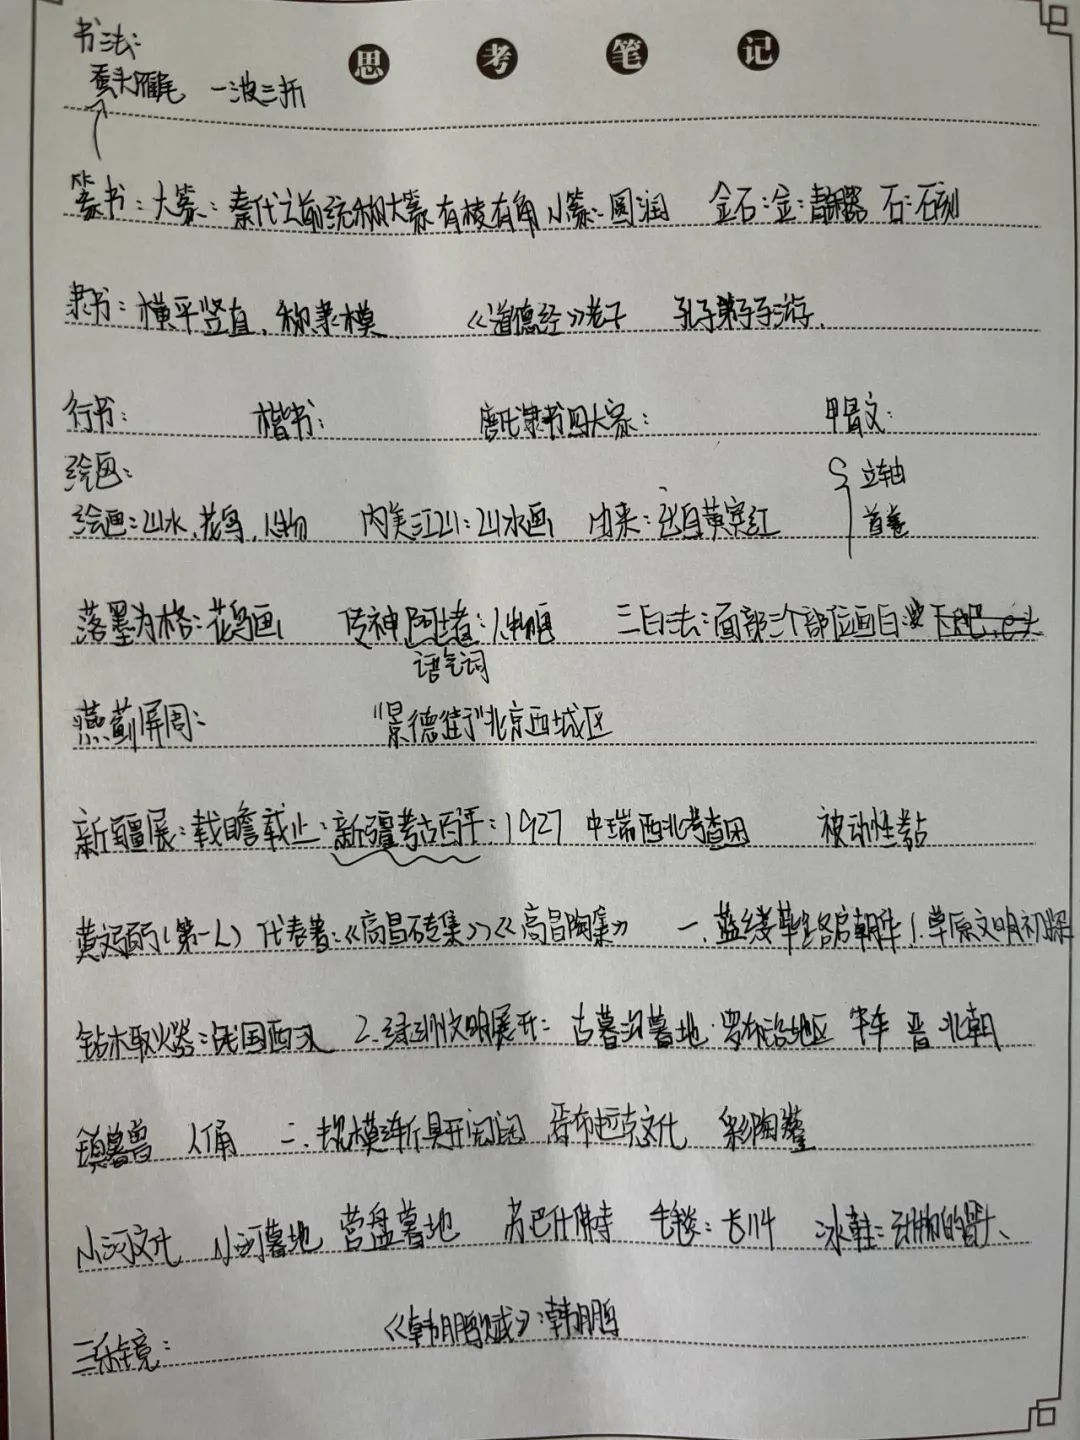 思考笔记
书法:
蚕头雁尾 一波三折
篆书:大篆:秦代之前统称大篆 有棱有角 小篆:圆润 金石:金:青铜器 石:石刻
隶书:横平竖直. 称隶模. 《道德经》老子 孔子弟子子游.
行书: 楷书: 唐代隶书四大家: 甲骨文:
绘画: 立轴
绘画:山水.花鸟.人物 内美江山:山水画 由来:出自黄宾虹 首卷
落墨为格:花鸟画 传神阿堵:人物画 三白法:面部三个部位画白
语气词
燕蓟屏周: "景德街"北京西城区
新疆展:载瞻载止:新疆考古百年:1927 中瑞西北考查团 被动性考古
黄文弼(第一人) 代表著:《高昌砖集》《高昌陶集》 一.蓝缕筚路启朝华 1.草原文明初探
钻木取火器:战国西汉 2.绿洲文明展开: 古墓沟墓地.罗布泊地区 牛车 晋 北朝
镇兽 人俑 二.规模渐具开阔 香布拉克文化 彩陶
小河文化 小河墓地 营盘墓地 苏巴什佛寺 毛毯: 冰鞋:动物的骨头、
三乐镜: 《韩朋赋》:韩朋